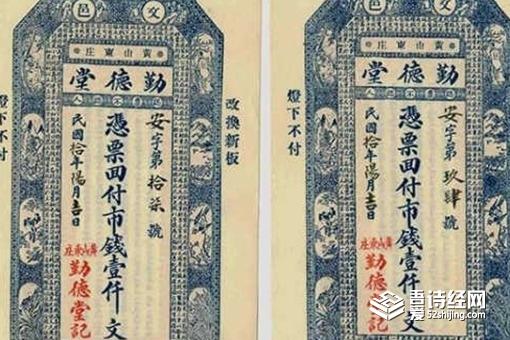 文邑
黄山東庄
勤德堂
認票不認人
安字第拾柒號
憑票回付市錢壹仟文
民國拾年陽月吉日
黃山東庄
勤德堂記
改換新板
燈下不付
文邑
黄山東庄
勤德堂
認票不認人
安字第玖肆號
憑票回付市錢壹仟文
民國拾年陽月吉日
黃山東庄
勤德堂記
燈下不付
吾诗经网
52shijing.com